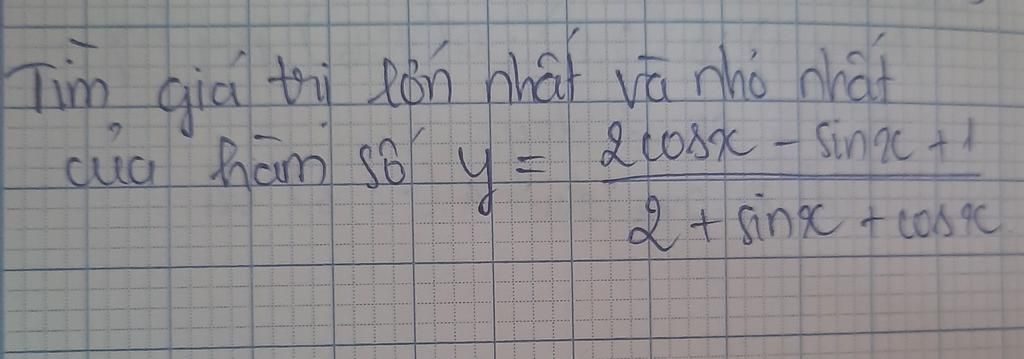 Tìm giá trị lớn nhất và nhỏ nhất
của hàm số y = \frac{2cosx - sinx + 1}{2 + sinx + cosx}